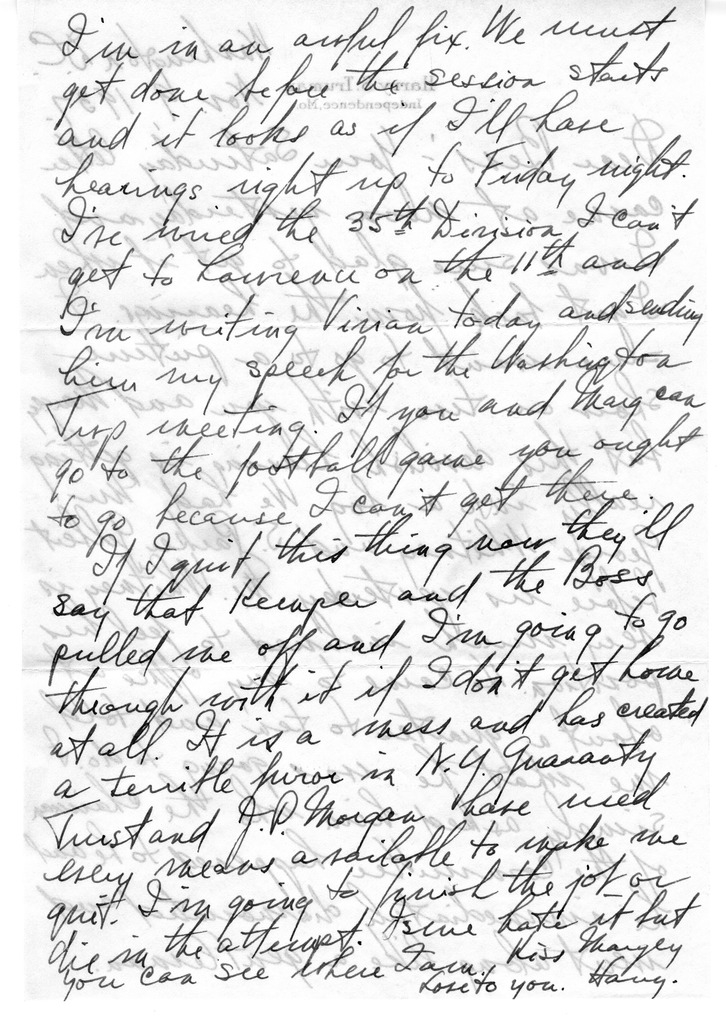 I'm in an awful fix. We must
get done before the session starts
and it looks as if I'll have
hearings right up to Friday night.
I've wired the 35th Division I can't
get to Lawrence on the 11th and
I'm writing Vivian today and sending
him my speech for the Washington
Twp meeting. If you and Marg can
go to the football game you ought
to go because I can't get there.
If I quit this thing now they'll
say that Kemper and the Boss
pulled me off and I'm going to go
through with it if I don't get home
at all. It is a mess and has created
a terrible furor in N.Y. Guaranty
Trust and J.P. Morgan have used
every means available to make me
quit. I'm going to finish the job or
die in the attempt. I sure hate it but
you can see where I am. Kiss Margey
Love to you. Harry.